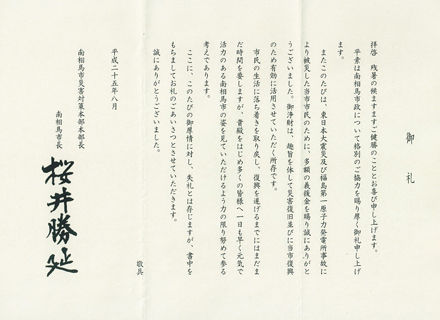 御礼
拝啓　残暑の候ますますご健勝のこととお喜び申し上げます。
平素は南相馬市政について格別のご協力を賜り厚く御礼申し上げ
ます。
またこのたびは、東日本大震災及び福島第一原子力発電所事故に
より被災した当市市民のために、多額の義援金を賜り誠にありがと
うございました。御浄財は、趣旨を体して災害復旧並びに当市復興
のため有効に活用させていただく所存です。
市民の生活に落ち着きを取り戻し、復興を遂げるまでにはまだま
だ時間を要しますが、貴殿をはじめ多くの皆様へ一日も早く元気で
活力のある南相馬市の姿を見ていただけるよう力の限り努めて参る
考えであります。
ここに、このたびの御厚情に対し、失礼とは存じますが、書中を
もちましてお礼のごあいさつとさせていただきます。
誠にありがとうございました。
敬具
平成二十五年八月
南相馬市災害対策本部本部長
南相馬市長
桜井勝延